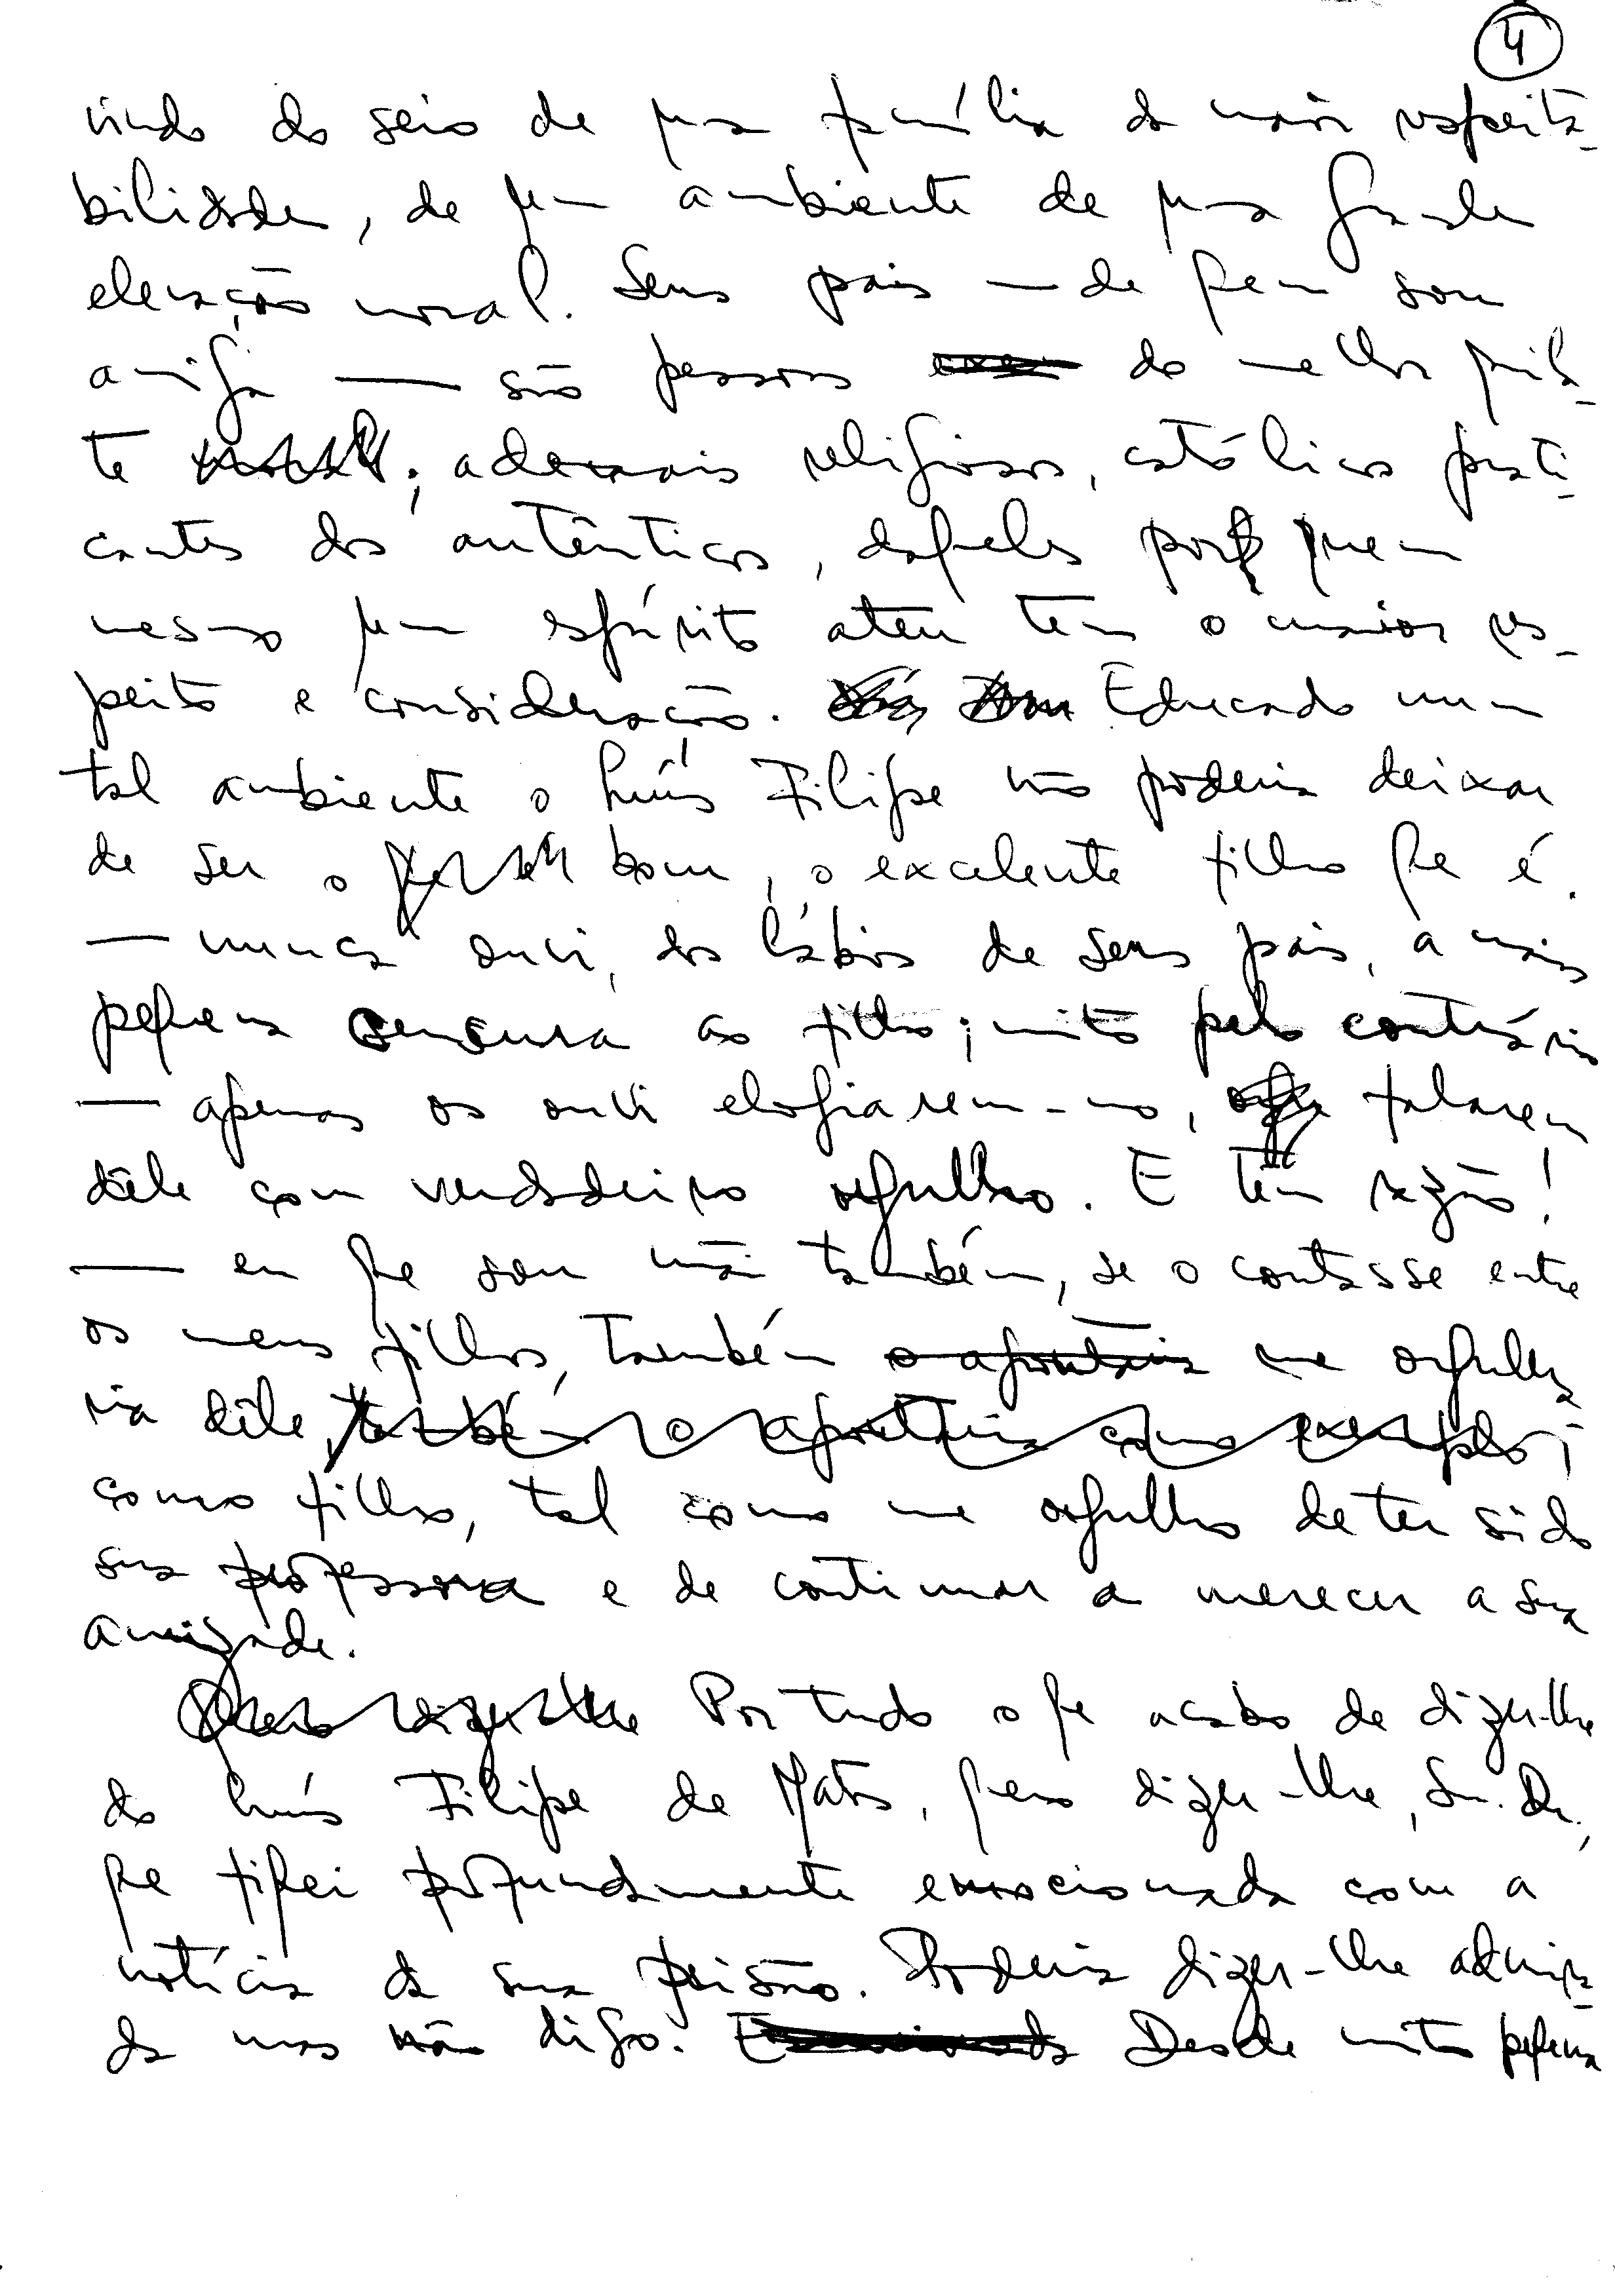 4
vindo do seio de uma família da maior respeita-
bilidade, de um ambiente de uma grande
elevação moral. Seus pais — de quem sou
amiga — são pessoas do melhor quila-
te ; ademais religiosos, católicos prati-
cantes dos autênticos, daqueles por quem
mesmo um espírito ateu tem o maior res-
peito e consideração. Educado num
tal ambiente o Luís Filipe não poderia deixar
de ser o bom, o excelente filho que é.
— nunca ouvi, dos lábios de seus pais, a mais
pequena censura ao filho; muito pelo contrário
— apenas os ouvi elogiarem-no, falarem
dêle com verdadeiro orgulho. E têm razão!
— eu que sou mãe também, se o contasse entre
os meus filhos, também o apontaria me orgulha-
ria dêle, também o apontaria como exemplo;
como filho, tal como me orgulho de ter sido
sua professora e de continuar a merecer a sua
amizade.
Quero dizer-lhe Por tudo o que acabo de dizer-lhe
do Luís Filipe de Matos, quero dizer-lhe, Sr. Dr.,
que fiquei profundamente emocionada com a
notícia da sua prisão. Poderia dizer-lhe admira-
da mas não digo. Emocionada Desde muito pequena